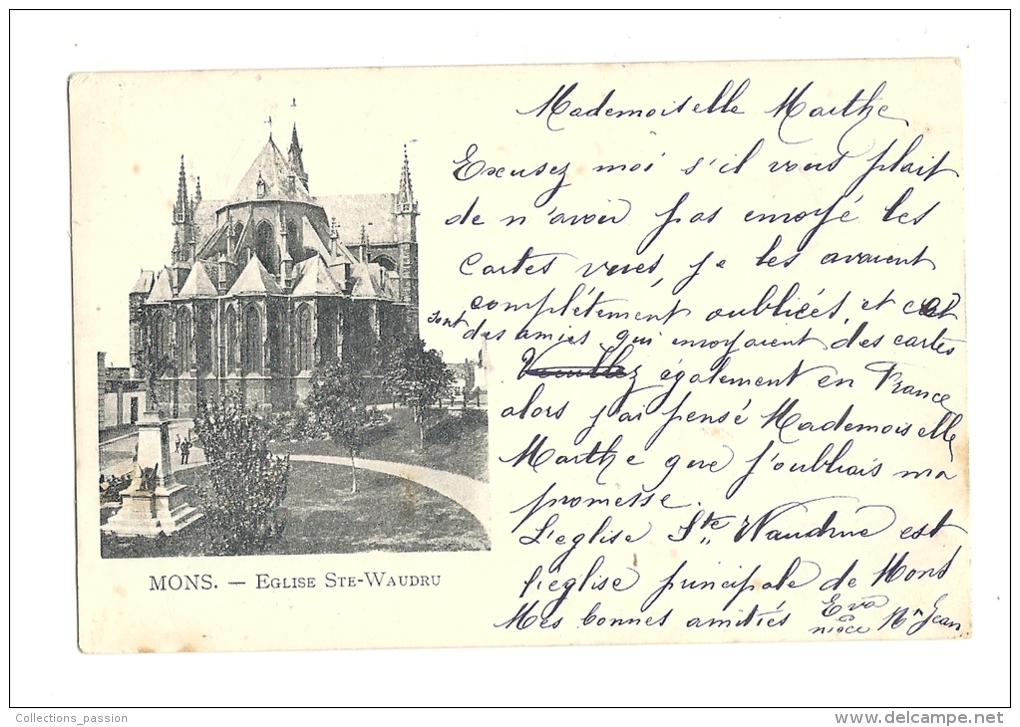 Mademoiselle Marthe
Excusez moi s'il vous plait
de n'avoir pas envoyé les
cartes vues, je les avaient
complétement oubliées, et c'est
sont des amies qui envoyaient des cartes
également en France
alors j'ai pensé Mademoiselle
Marthe que j'oubliais ma
promesse.
L'eglise Ste Waudrue est
l'eglise principale de Mons
Mes bonnes amitiés Eva
nièce Mr Jean
MONS. — EGLISE STE-WAUDRU
Collections_passion
www.delcampe.net